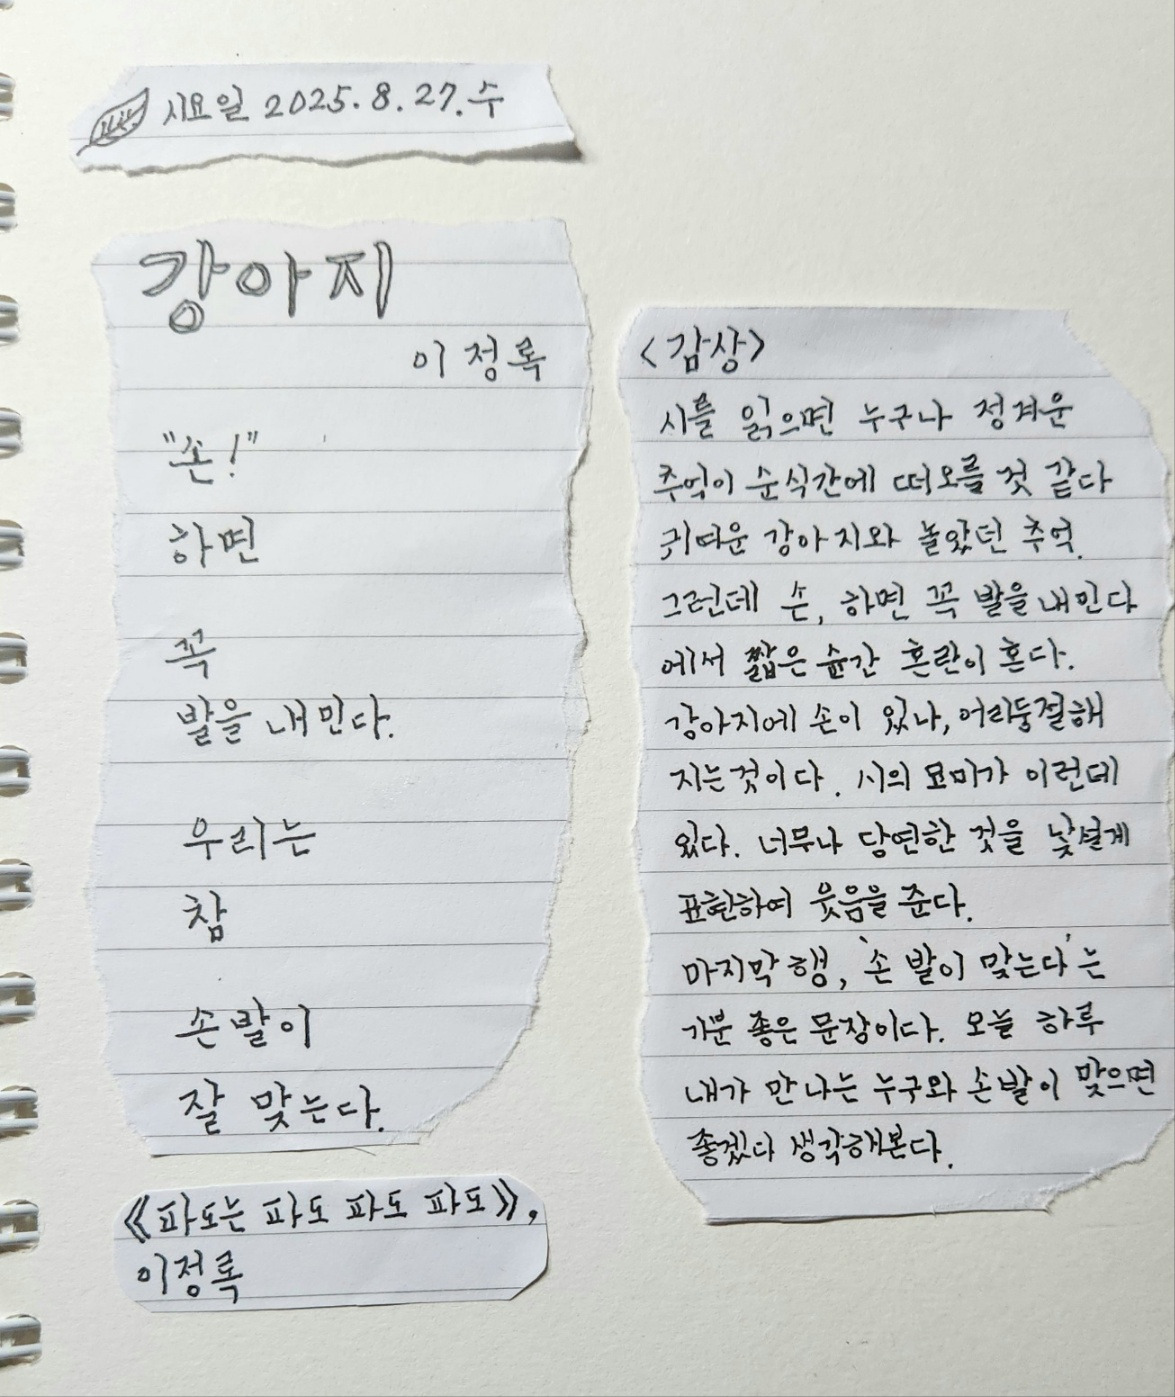 시요일 2025.8.27.수
강아지
이정록
"손!"
하면
꼭
발을 내민다.
우리는
참
손발이
잘 맞는다.
《파도는 파도 파도 파도》,
이정록
<감상>
시를 읽으면 누구나 정겨운
추억이 순식간에 떠오를 것 같다
귀여운 강아지와 놀았던 추억.
그런데 손, 하면 꼭 발을 내민다
에서 짧은 순간 혼란이 온다.
강아지에 손이 있나, 어리둥절해
지는것이다. 시의 묘미가 이런데
있다. 너무나 당연한 것을 낯설게
표현하여 웃음을 준다.
마지막 행, '손 발이 맞는다'는
기분 좋은 문장이다. 오늘 하루
내가 만나는 누구와 손발이 맞으면
좋겠다 생각해본다.